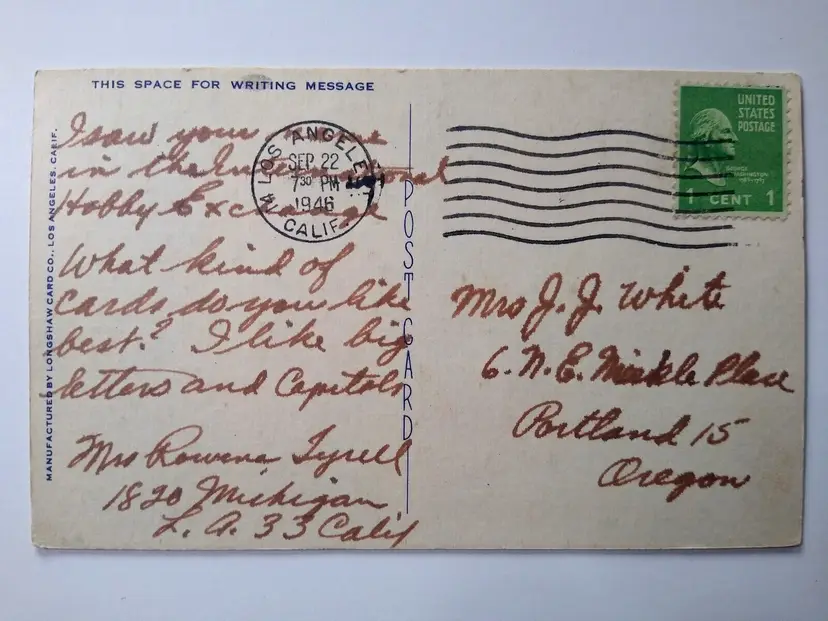 THIS SPACE FOR WRITING MESSAGE
I saw your name
in the International
Hobby Exchange
What kind of
cards do you like
best? I like big
letters and Capitols
Mrs Rowena Tyrell
1820 Michigan
L. A. 33 Calif
MANUFACTURED BY LONGSHAW CARD CO., LOS ANGELES, CALIF.
POST CARD
LOS ANGELES
SEP 22
7 30 PM
1946
CALIF.
UNITED
STATES
POSTAGE
GEORGE
WASHINGTON
1 CENT 1
Mrs J. J. White
6. N. E. Place
Portland 15
Oregon